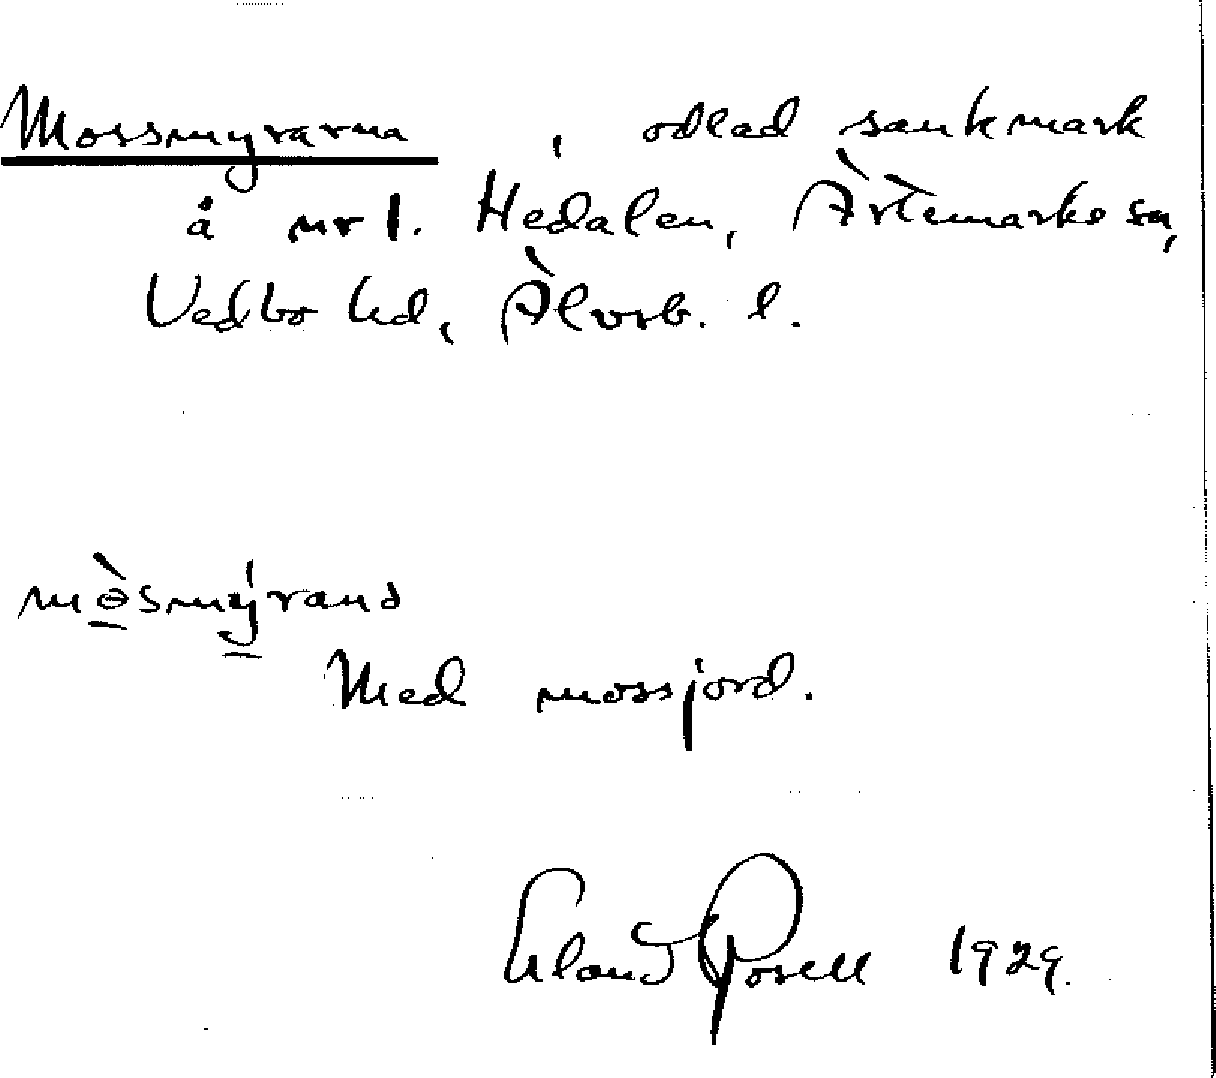 Mossmyrarna , odlad sankmark
å nr 1. Hedalen, Ärtemarks sn,
Vedbo hd, Älvsb. l.
mòsmy̆ranə
Med mossjord.
Erland Rosell 1929.